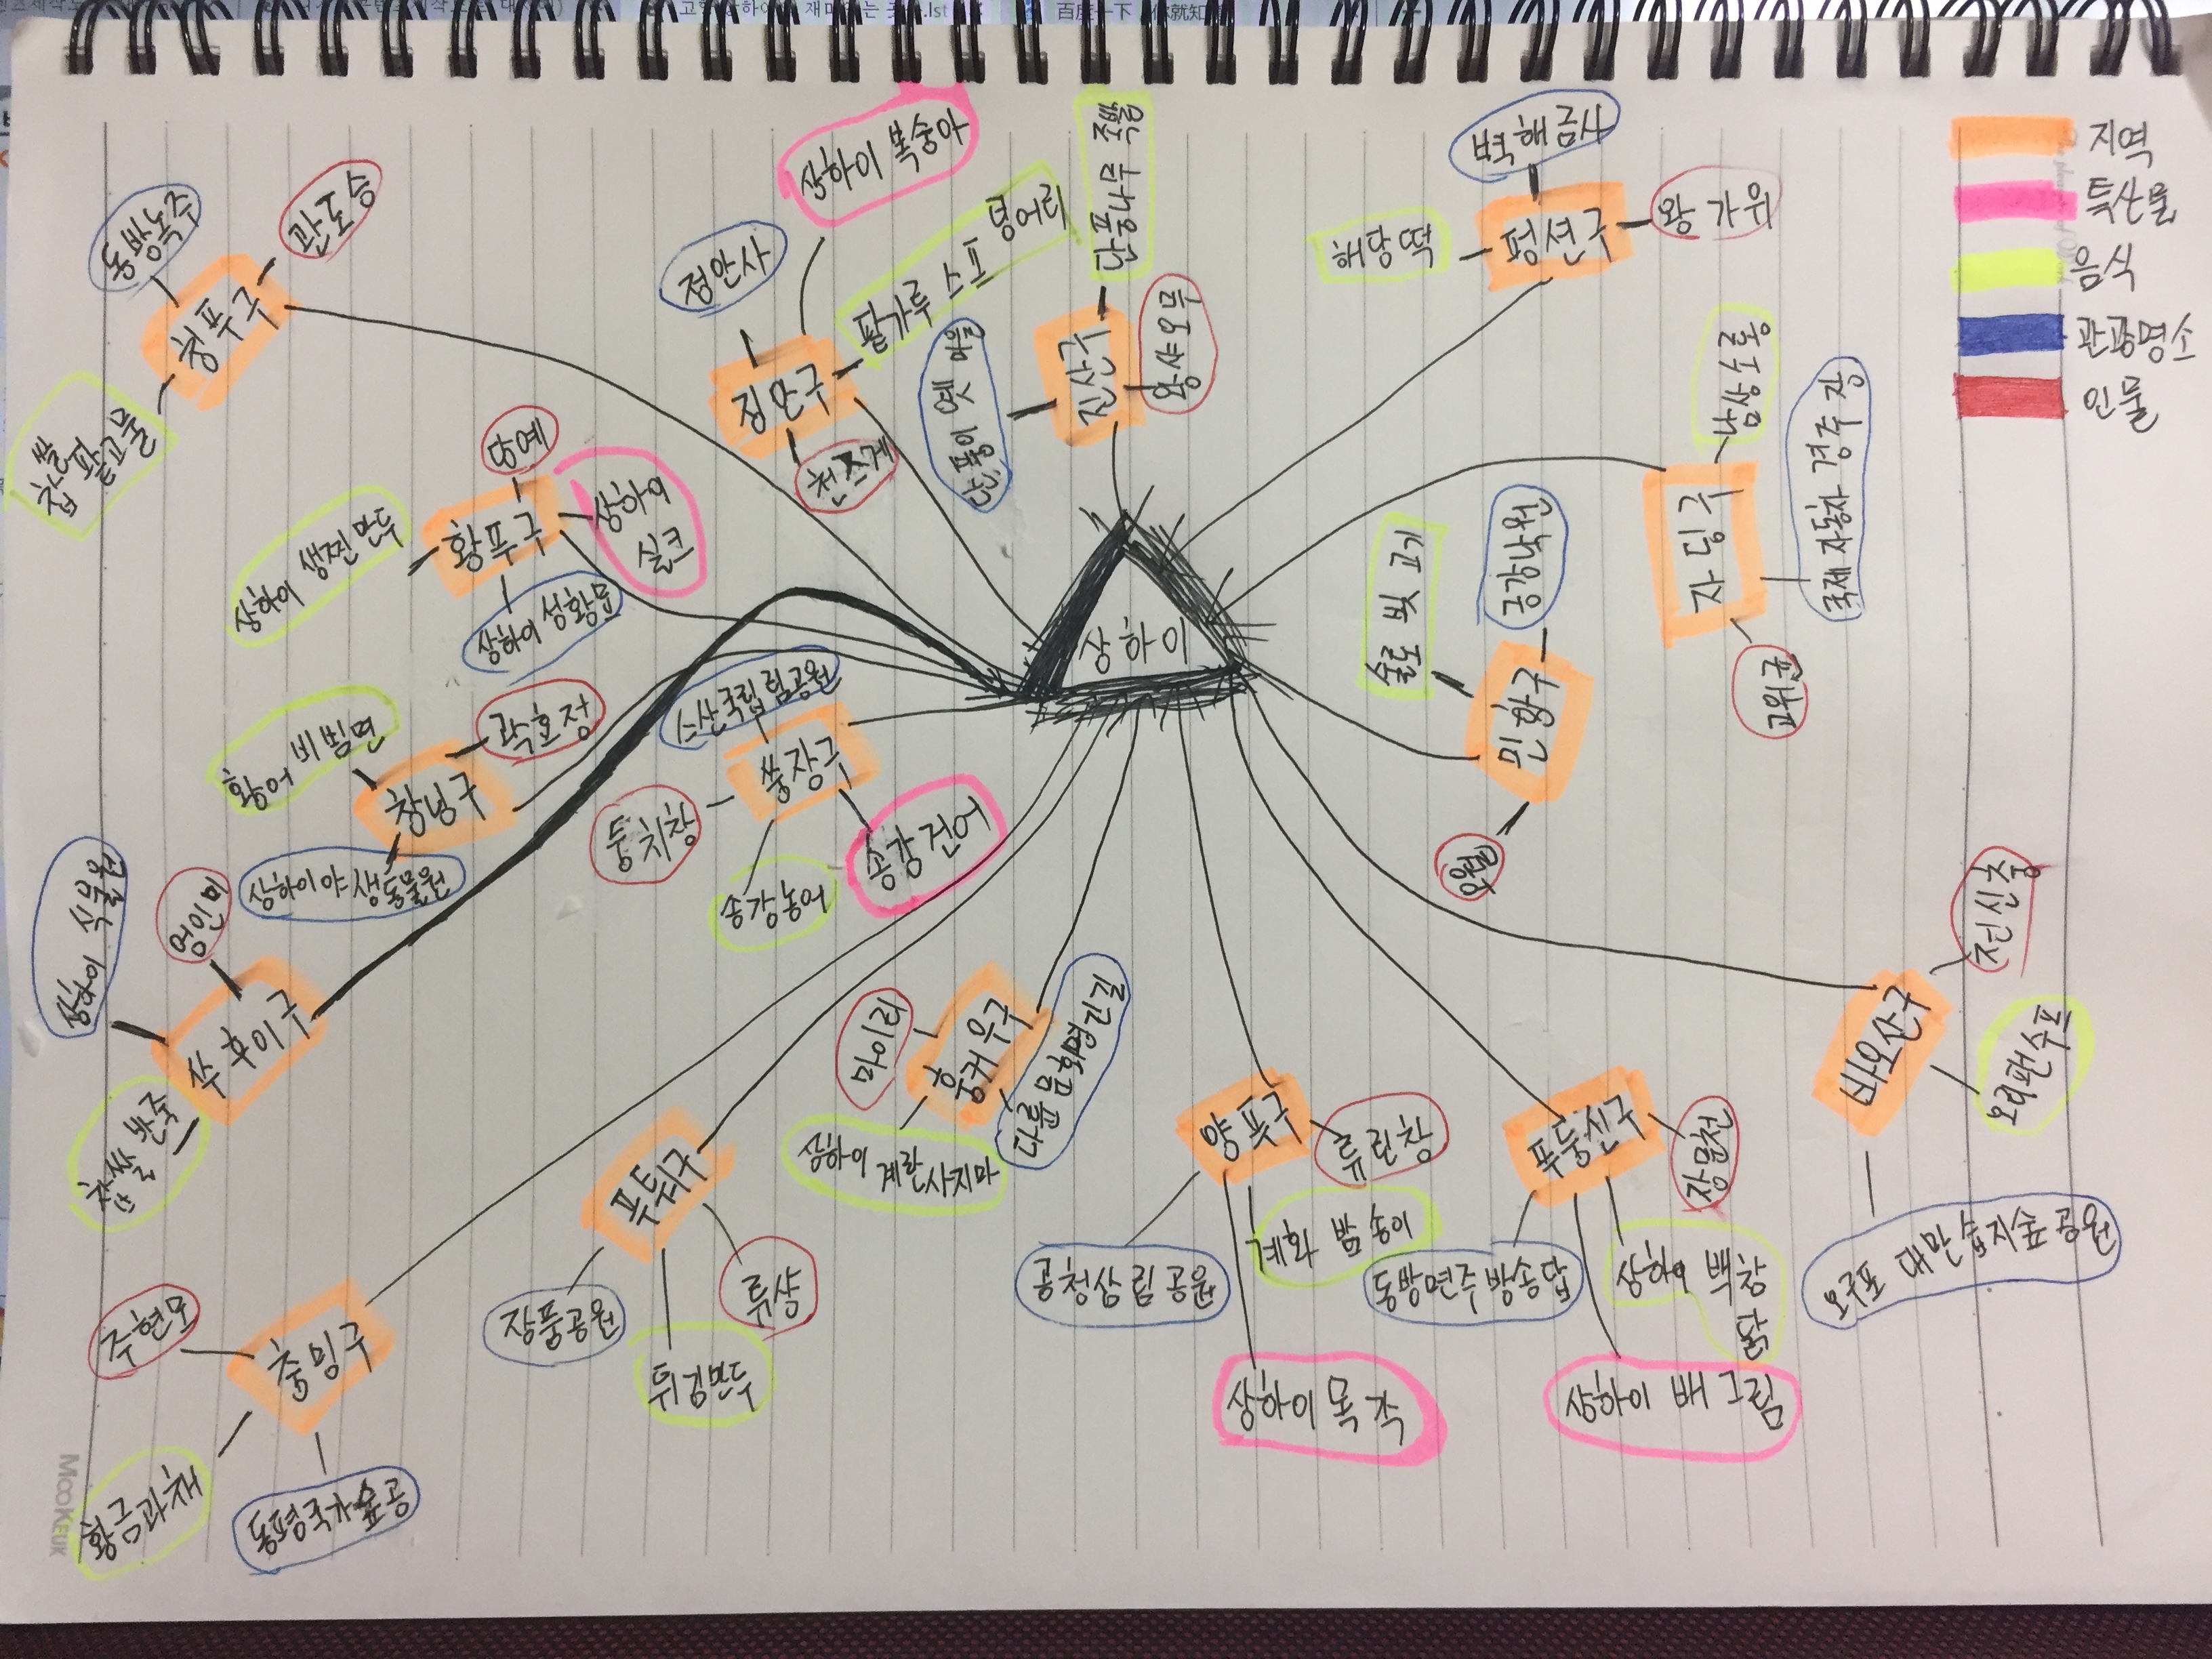 百度一下
지역
특산물
음식
관광명소
인물
상하이
칭푸구
동방녹주
관도승
찹쌀 팥고물
징안구
정안사
상하이 복숭아
팥가루 스프 덩어리
천즈게
진산구
단풍나무 족발
왕샤오무
단풍이 옛 마을
펑션구
벽해금사
왕 가위
해당떡
자딩구
남상소롱
국제 자동차 경주 장
고위균
민항구
금강낙원
술로 빚 고기
황푸구
당예
상하이 실크
상하이 생찐만두
상하이 성황묘
창닝구
곽호정
황어 비빔면
상하이야생동물원
쏭장구
스산국립림공원
송강건어
송강농어
쑤후이구
엄인미
상하이 식물원
찹쌀 반죽
충밍구
주현모
황금과채
동평국가숲공
푸퉈구
장풍공원
튀김만두
류샹
홍커우구
마이리
다륜문화명인길
상하이 계란사지마
양푸구
류린창
계화 밤송이
공청삼림공원
상하이목각
푸둥신구
장문천
동방면주방송탑
상하이 백창닭
상하이 배 그림
바오산구
전신충
오리팬수프
오구포 대만습지숲공원
MOOKEUK